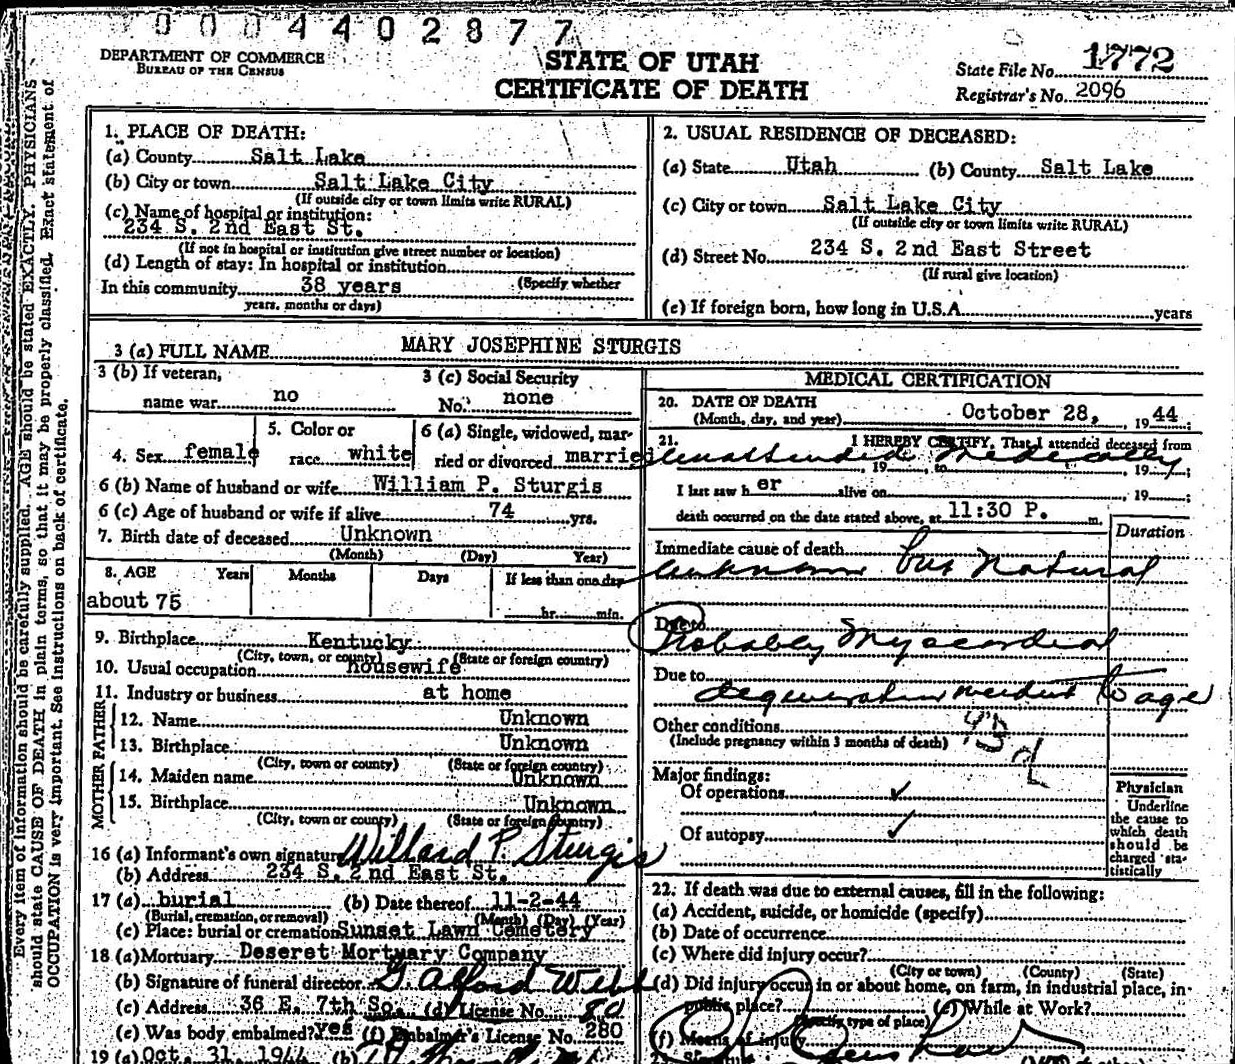 0004402877
DEPARTMENT OF COMMERCE
BUREAU OF THE CENSUS
STATE OF UTAH
CERTIFICATE OF DEATH
State File No. 1772
Registrar's No. 2096
Every item of information should be carefully supplied. AGE should be stated EXACTLY. PHYSICIANS
should state CAUSE OF DEATH in plain terms, so that it may be properly classified. Exact statement of
OCCUPATION is very important. See instructions on back of certificate.
1. PLACE OF DEATH:
(a) County Salt Lake
(b) City or town Salt Lake City
(If outside city or town limits write RURAL)
(c) Name of hospital or institution:
234 S. 2nd East St.
(If not in hospital or institution give street number or location)
(d) Length of stay: In hospital or institution
(Specify whether
In this community 38 years
years, months or days)
2. USUAL RESIDENCE OF DECEASED:
(a) State Utah (b) County Salt Lake
(c) City or town Salt Lake City
(If outside city or town limits write RURAL)
(d) Street No. 234 S. 2nd East Street
(If rural give location)
(e) If foreign born, how long in U.S.A. years
3 (a) FULL NAME MARY JOSEPHINE STURGIS
3 (b) If veteran,
name war no
3 (c) Social Security
No. none
4. Sex female
5. Color or
race white
6 (a) Single, widowed, mar-
ried or divorced married
6 (b) Name of husband or wife William P. Sturgis
6 (c) Age of husband or wife if alive 74 yrs.
7. Birth date of deceased Unknown
(Month) (Day) Year)
8. AGE Years Months Days If less than one day
about 75 hr. min.
9. Birthplace Kentucky
(City, town, or county) (State or foreign country)
10. Usual occupation housewife
11. Industry or business at home
FATHER
12. Name Unknown
13. Birthplace Unknown
(City, town or county) (State or foreign country)
MOTHER
14. Maiden name Unknown
15. Birthplace Unknown
(City, town or county) (State or foreign country)
16 (a) Informant's own signature Willard P. Sturgis
(b) Address 234 S. 2nd East St.
17 (a) burial (b) Date thereof 11-2-44
(Burial, cremation, or removal) (Month) (Day) (Year)
(c) Place: burial or cremation Sunset Lawn Cemetery
18 (a) Mortuary Deseret Mortuary Company
(b) Signature of funeral director G. Alford Webb
(c) Address 36 E. 7th So. (d) License No. 80
(e) Was body embalmed? yes (f) Embalmer's License No. 280
19 (a) Oct. 31 1944 (b)
MEDICAL CERTIFICATION
20. DATE OF DEATH
(Month, day, and year) October 28, 1944
21. I HEREBY CERTIFY, That I attended deceased from
unattended medically , 19 , to , 19 ;
I last saw h er alive on , 19 ;
death occurred on the date stated above, at 11:30 P. m.
Duration
Immediate cause of death
unknown but Natural
Due to
Probably Myocardial
Due to
degeneration incident to age
Other conditions
(Include pregnancy within 3 months of death)
93d
Major findings:
Of operations ✓
Of autopsy ✓
Physician
Underline
the cause to
which death
should be
charged sta-
tistically
22. If death was due to external causes, fill in the following:
(a) Accident, suicide, or homicide (specify)
(b) Date of occurrence
(c) Where did injury occur?
(City or town) (County) (State)
(d) Did injury occur in or about home, on farm, in industrial place, in
public place? (e) While at Work?
(Specify type of place)
(f) Means of injury